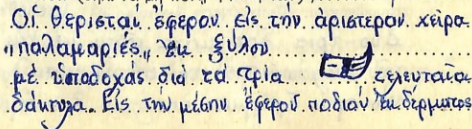 Οἱ θερισταί ἔφερον εἰς τήν ἀριστεράν χεῖρα
„παλαμαριές„ ἐκ ξύλου
μέ ὑποδοχάς διά τά τρία τελευταῖα
δάκτυλα. Εἰς τήν μέσην ἔφερον ποδιάν ἐκ δέρματος